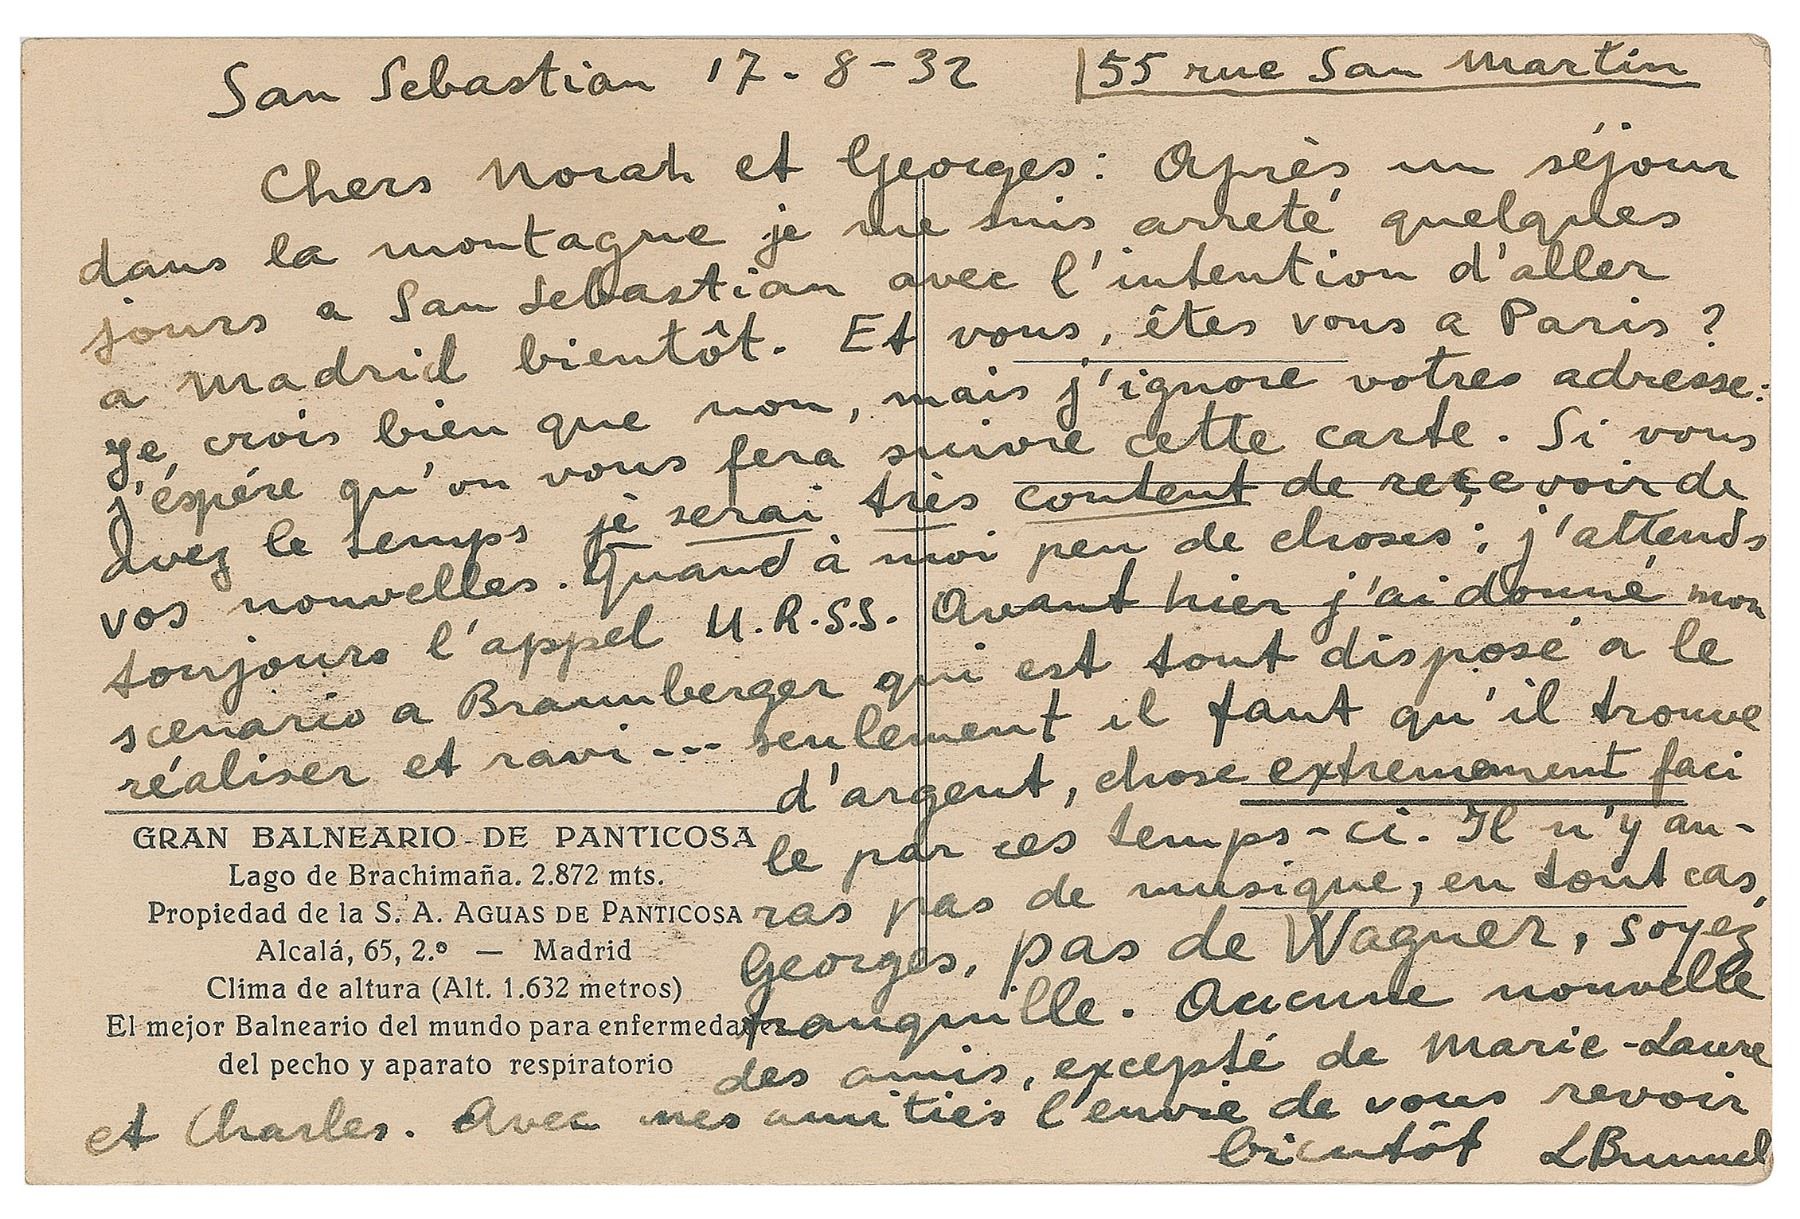 San Sebastian 17-8-32 55 rue San Martin
Chers Norah et Georges: Après un séjour
dans la montagne je me suis arreté quelques
jours a San Sebastian avec l'intention d'aller
a Madrid bientôt. Et vous, êtes vous a Paris?
Je crois bien que non, mais j'ignore votres adresse:
j'éspére qu'on vous fera suivre cette carte. Si vous
avez le temps je serai très content de reçevoir de
vos nouvelles. Quand à moi peu de choses; j'attends
toujours l'appel U.R.S.S. Avant hier j'ai donné mon
scenario a Braunberger qui est tout disposé a le
réaliser et ravi--- seulement il faut qu'il trouve
d'argent, chose extremement faci
le par ces temps-ci. Il n'y au-
ras pas de musique, en tout cas,
Georges, pas de Wagner, soyez
tranquille. Aucune nouvelle
des amis, excepté de Marie-Laure
et Charles. Avec mes amitiés l'envie de vous revoir
bientôt LBunuel
GRAN BALNEARIO DE PANTICOSA
Lago de Brachimaña. 2.872 mts.
Propiedad de la S. A. AGUAS DE PANTICOSA
Alcalá, 65, 2.º — Madrid
Clima de altura (Alt. 1.632 metros)
El mejor Balneario del mundo para enfermedades
del pecho y aparato respiratorio